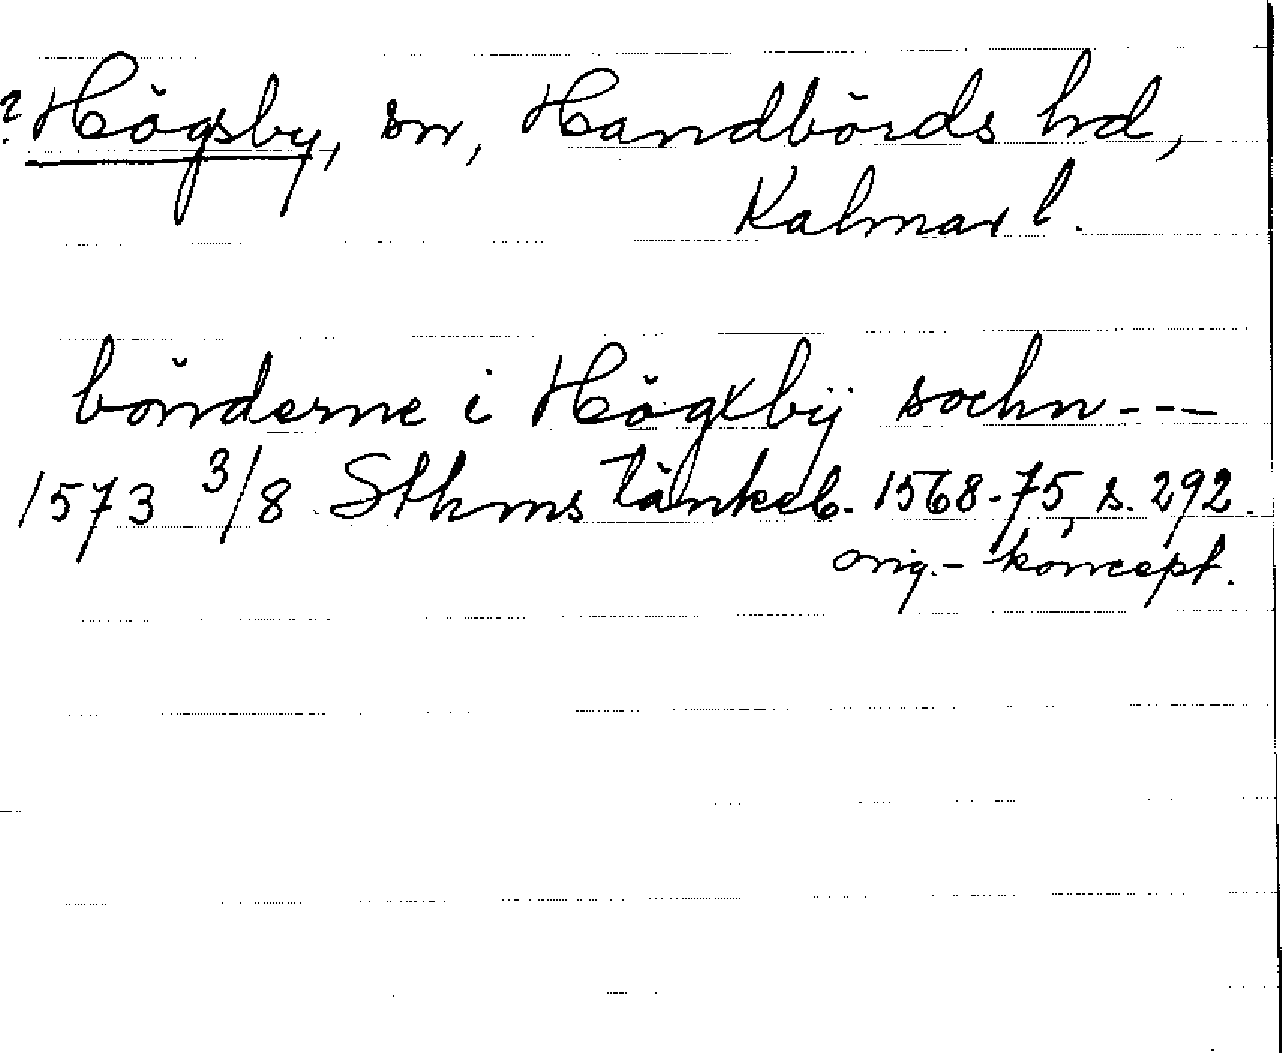 ? Högsby, sn, Handbörds hd,
Kalmar l.
bönderne i Högxbÿ sochn ---
1573 3/8 Sthms tänkeb. 1568-75, s. 292.
orig.- koncept.